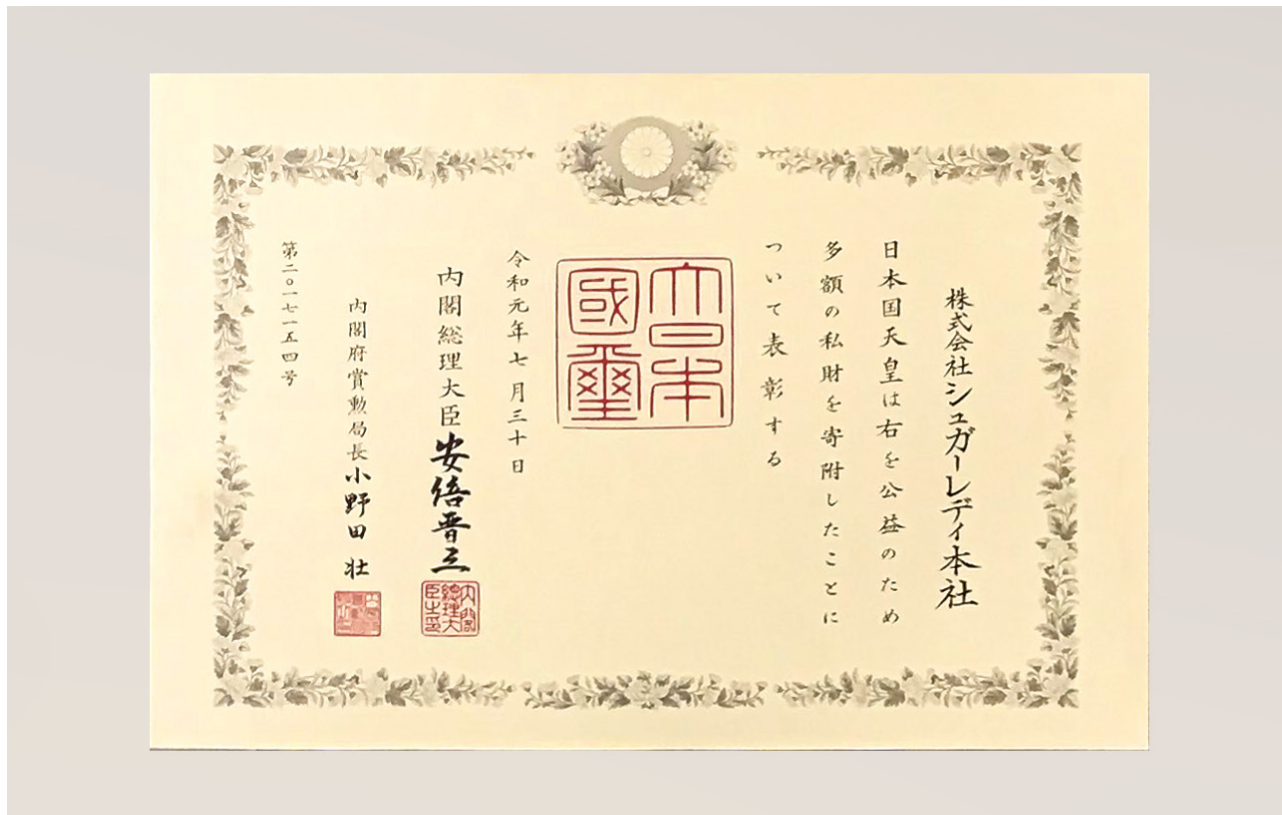 株式会社シュガーレディ本社
日本国天皇は右を公益のため
多額の私財を寄附したことに
ついて表彰する
大日本
國璽
令和元年七月三十日
内閣総理大臣安倍晋三
内閣総理大臣之印
内閣府賞勲局長小野田壮
第二〇一七一五四号